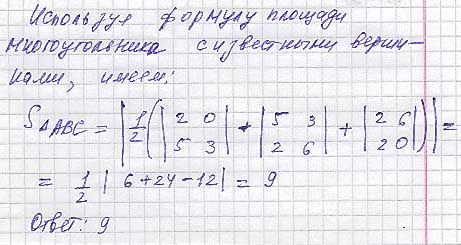 Используя формулу площади
многоугольника с известными верши-
нами, имеем:
S△ABC = |1/2(|2 0; 5 3| + |5 3; 2 6| + |2 6; 2 0|)| =
= 1/2 | 6+24-12| = 9
Ответ: 9